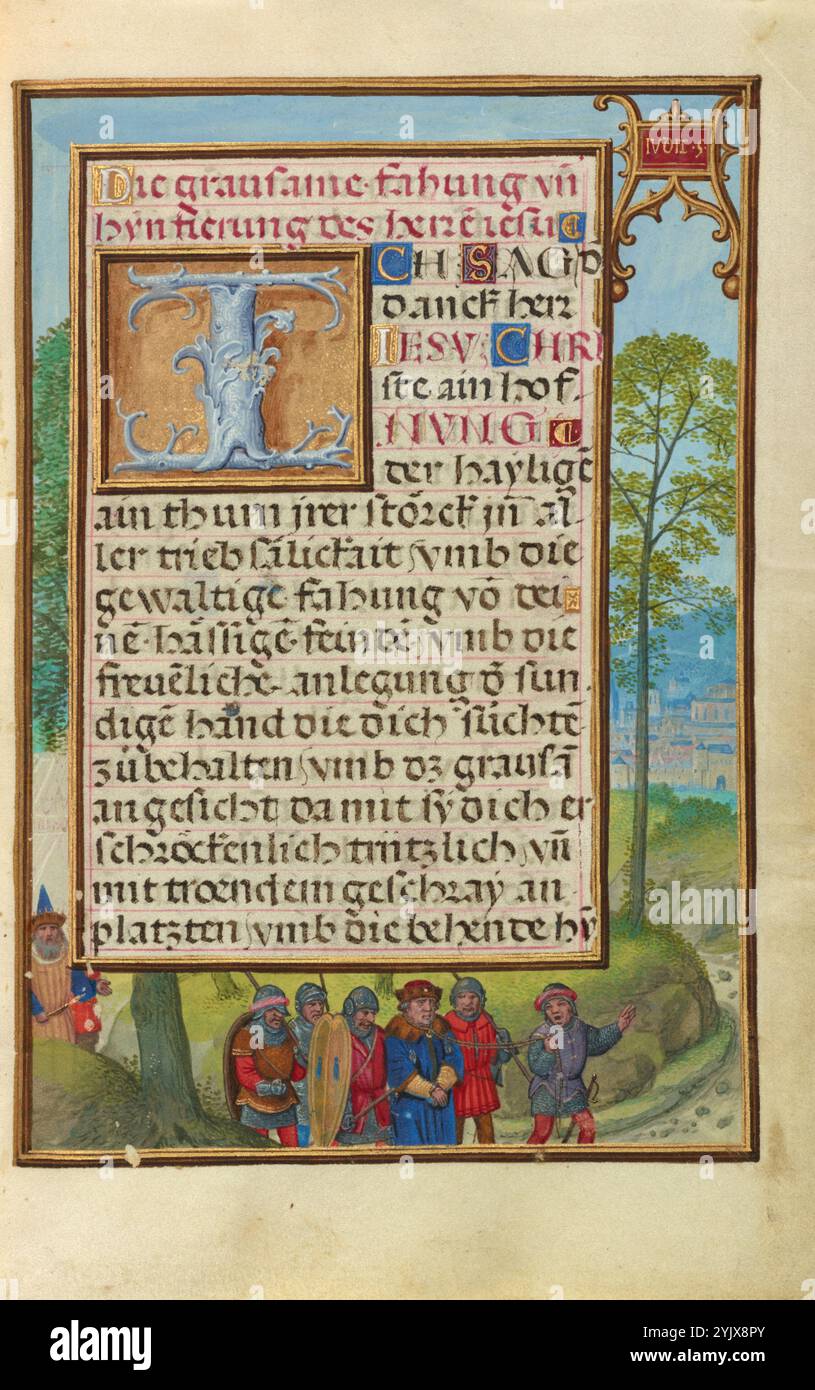 IVDIC·5·
Die grausame·fahung vn̄
hynfierung des herrē iesu
I
CH SAG D̄
danck herr
IESV CHRI
ste ain hof-
NVNG
der hayligē
ain thurn jrer störck jn̄ al-
ler triebsälickait vmb die
gewaltige fahung vō dei
nē hässigē feindē vmb die
freuēliche anlegung d̄ sun-
digē hānd die dich slichtē
zübehalten vmb dz grausā
angesicht damit sy dich er
schröckenlich trutzlich vn̄
mit troendem geschray an-
platzten vmb die behende hȳ
alamy
alamy
Image ID: 2YJX8PY
www.alamy.com